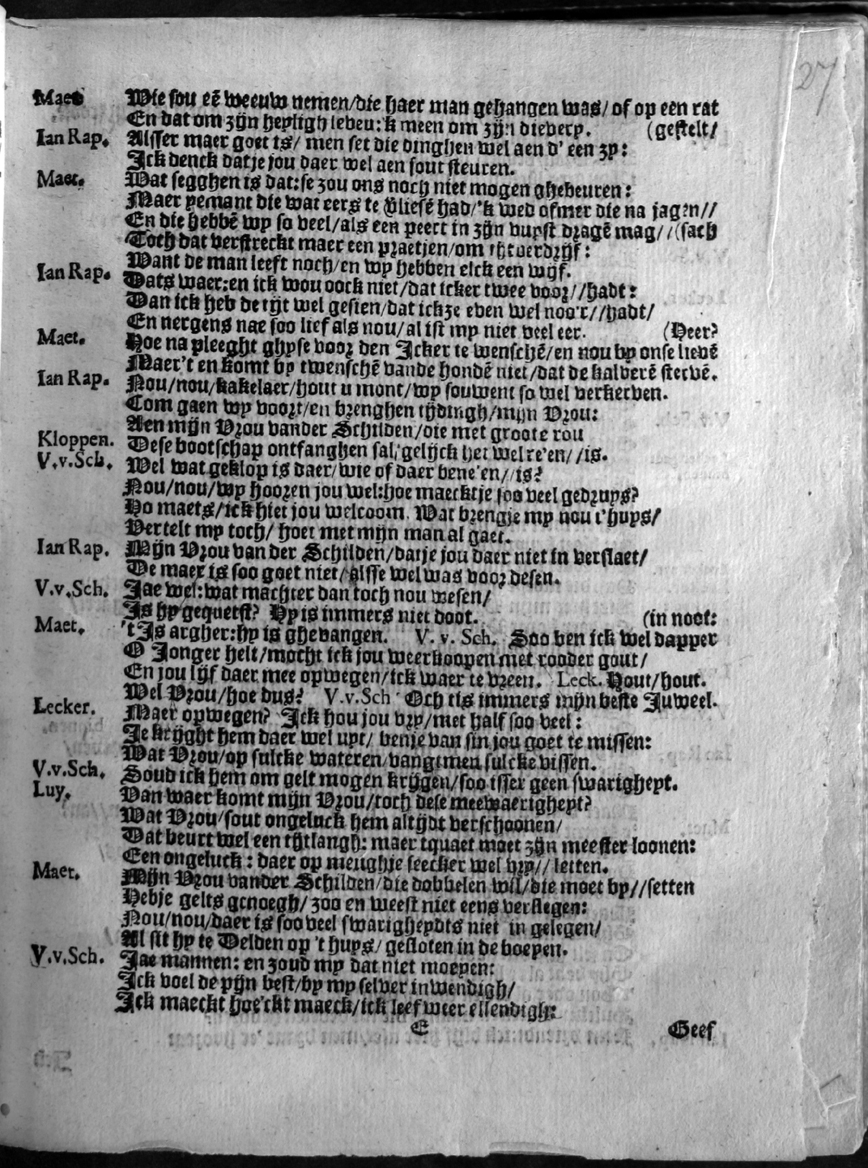 27
Maet Wie sou eē weeuw nemen/die haer man gehangen was/ of op een rat
En dat om zijn heyligh leven:'k meen om zijn dievery. (gestelt/
Ian Rap. Alsser maer goet is/ men set die dinghen wel aen d' een zy:
Ick denck datje jou daer wel aen sout steuren.
Maet. Wat segghen is dat:se zou ons noch niet mogen ghebeuren:
Maer yemant die wat eers te vliesē had/'k wed ofmer die na jagen//
En die hebbē wy so veel/als een peert in zijn vuyst dragē mag//(sach
Toch dat verstreckt maer een praetjen/om tijtverdrijf:
Want de man leeft noch/en wy hebben elck een wijf.
Ian Rap. Dats waer:en ick wou oock niet/dat icker twee voor//hadt:
Dan ick heb de tijt wel gesien/dat ickze even wel noo'r//hadt/
En nergens nae soo lief als nou/al ist my niet veel eer. (Heer?
Maet. Hoe na pleeght ghyse voor den Icker te wenschē/en nou by onse lievē
Maer't en komt by twenschē vande hondē niet/dat de kalverē stervē.
Ian Rap. Nou/nou/kakelaer/hout u mont/wy souwent so wel verkerven.
Com gaen wy voort/en brenghen tijdingh/mijn Vrou:
Aen mijn Vrou vander Schilden/die met groote rou
Kloppen. Dese bootschap ontfanghen sal/gelijck het wel re'en//is.
V.v.Sch. Wel wat geklop is daer/wie of daer bene'en//is?
Nou/nou/wy hooren jou wel:hoe maecktje soo veel gedruys?
Ho maets/ick hiet jou welcoom. Wat brengje my nou t'huys/
Vertelt my toch/ hoet met mijn man al gaet.
Ian Rap. Mijn Vrou van der Schilden/datje jou daer niet in verslaet/
De maer is soo goet niet/alsse wel was voor desen.
V.v.Sch. Jae wel:wat machter dan toch nou wesen/
Is hy gequetst? Hy is immers niet doot. (in noot:
Maet. 't Is argher:hy is ghevangen. V. v. Sch. Soo ben ick wel dapper
O Jonger helt/mocht ick jou weerkoopen met rooder gout/
En jou lijf daer mee opwegen/ick waer te vreen. Leck. Hout/hout.
Wel Vrou/hoe dus? V.v.Sch Och tis immers mijn beste Juweel.
Lecker. Maer opwegen? Ick hou jou vry/met half soo veel:
Je krijght hem daer wel uyt/ benje van sin jou goet te missen:
Wat Vrou/op sulcke wateren/vangt men sulcke vissen.
V.v.Sch. Soud ick hem om gelt mogen krijgen/soo isser geen swarigheyt.
Luy. Van waer komt mijn Vrou/toch dese meewaerigheyt?
Wat Vrou/sout ongeluck hem altijdt verschoonen/
Dat beurt wel een tijtlangh: maer tquaet moet zijn meester loonen:
Een ongeluck: daer op meughje seecker wel vry//letten.
Maet. Mijn Vrou vander Schilden/die dobbelen wil/die moet by//setten
Hebje gelts genoegh/zoo en weest niet eens verslegen:
Nou/nou/daer is soo veel swarigheydts niet in gelegen/
Al sit hy te Delden op 't huys/ gesloten in de boeyen.
V.v.Sch. Jae mannen: en zoud my dat niet moeyen:
Ick voel de pijn best/by my selver inwendigh/
Ick maeckt hoe'ckt maeck/ick leef weer ellendigh:
E Geef